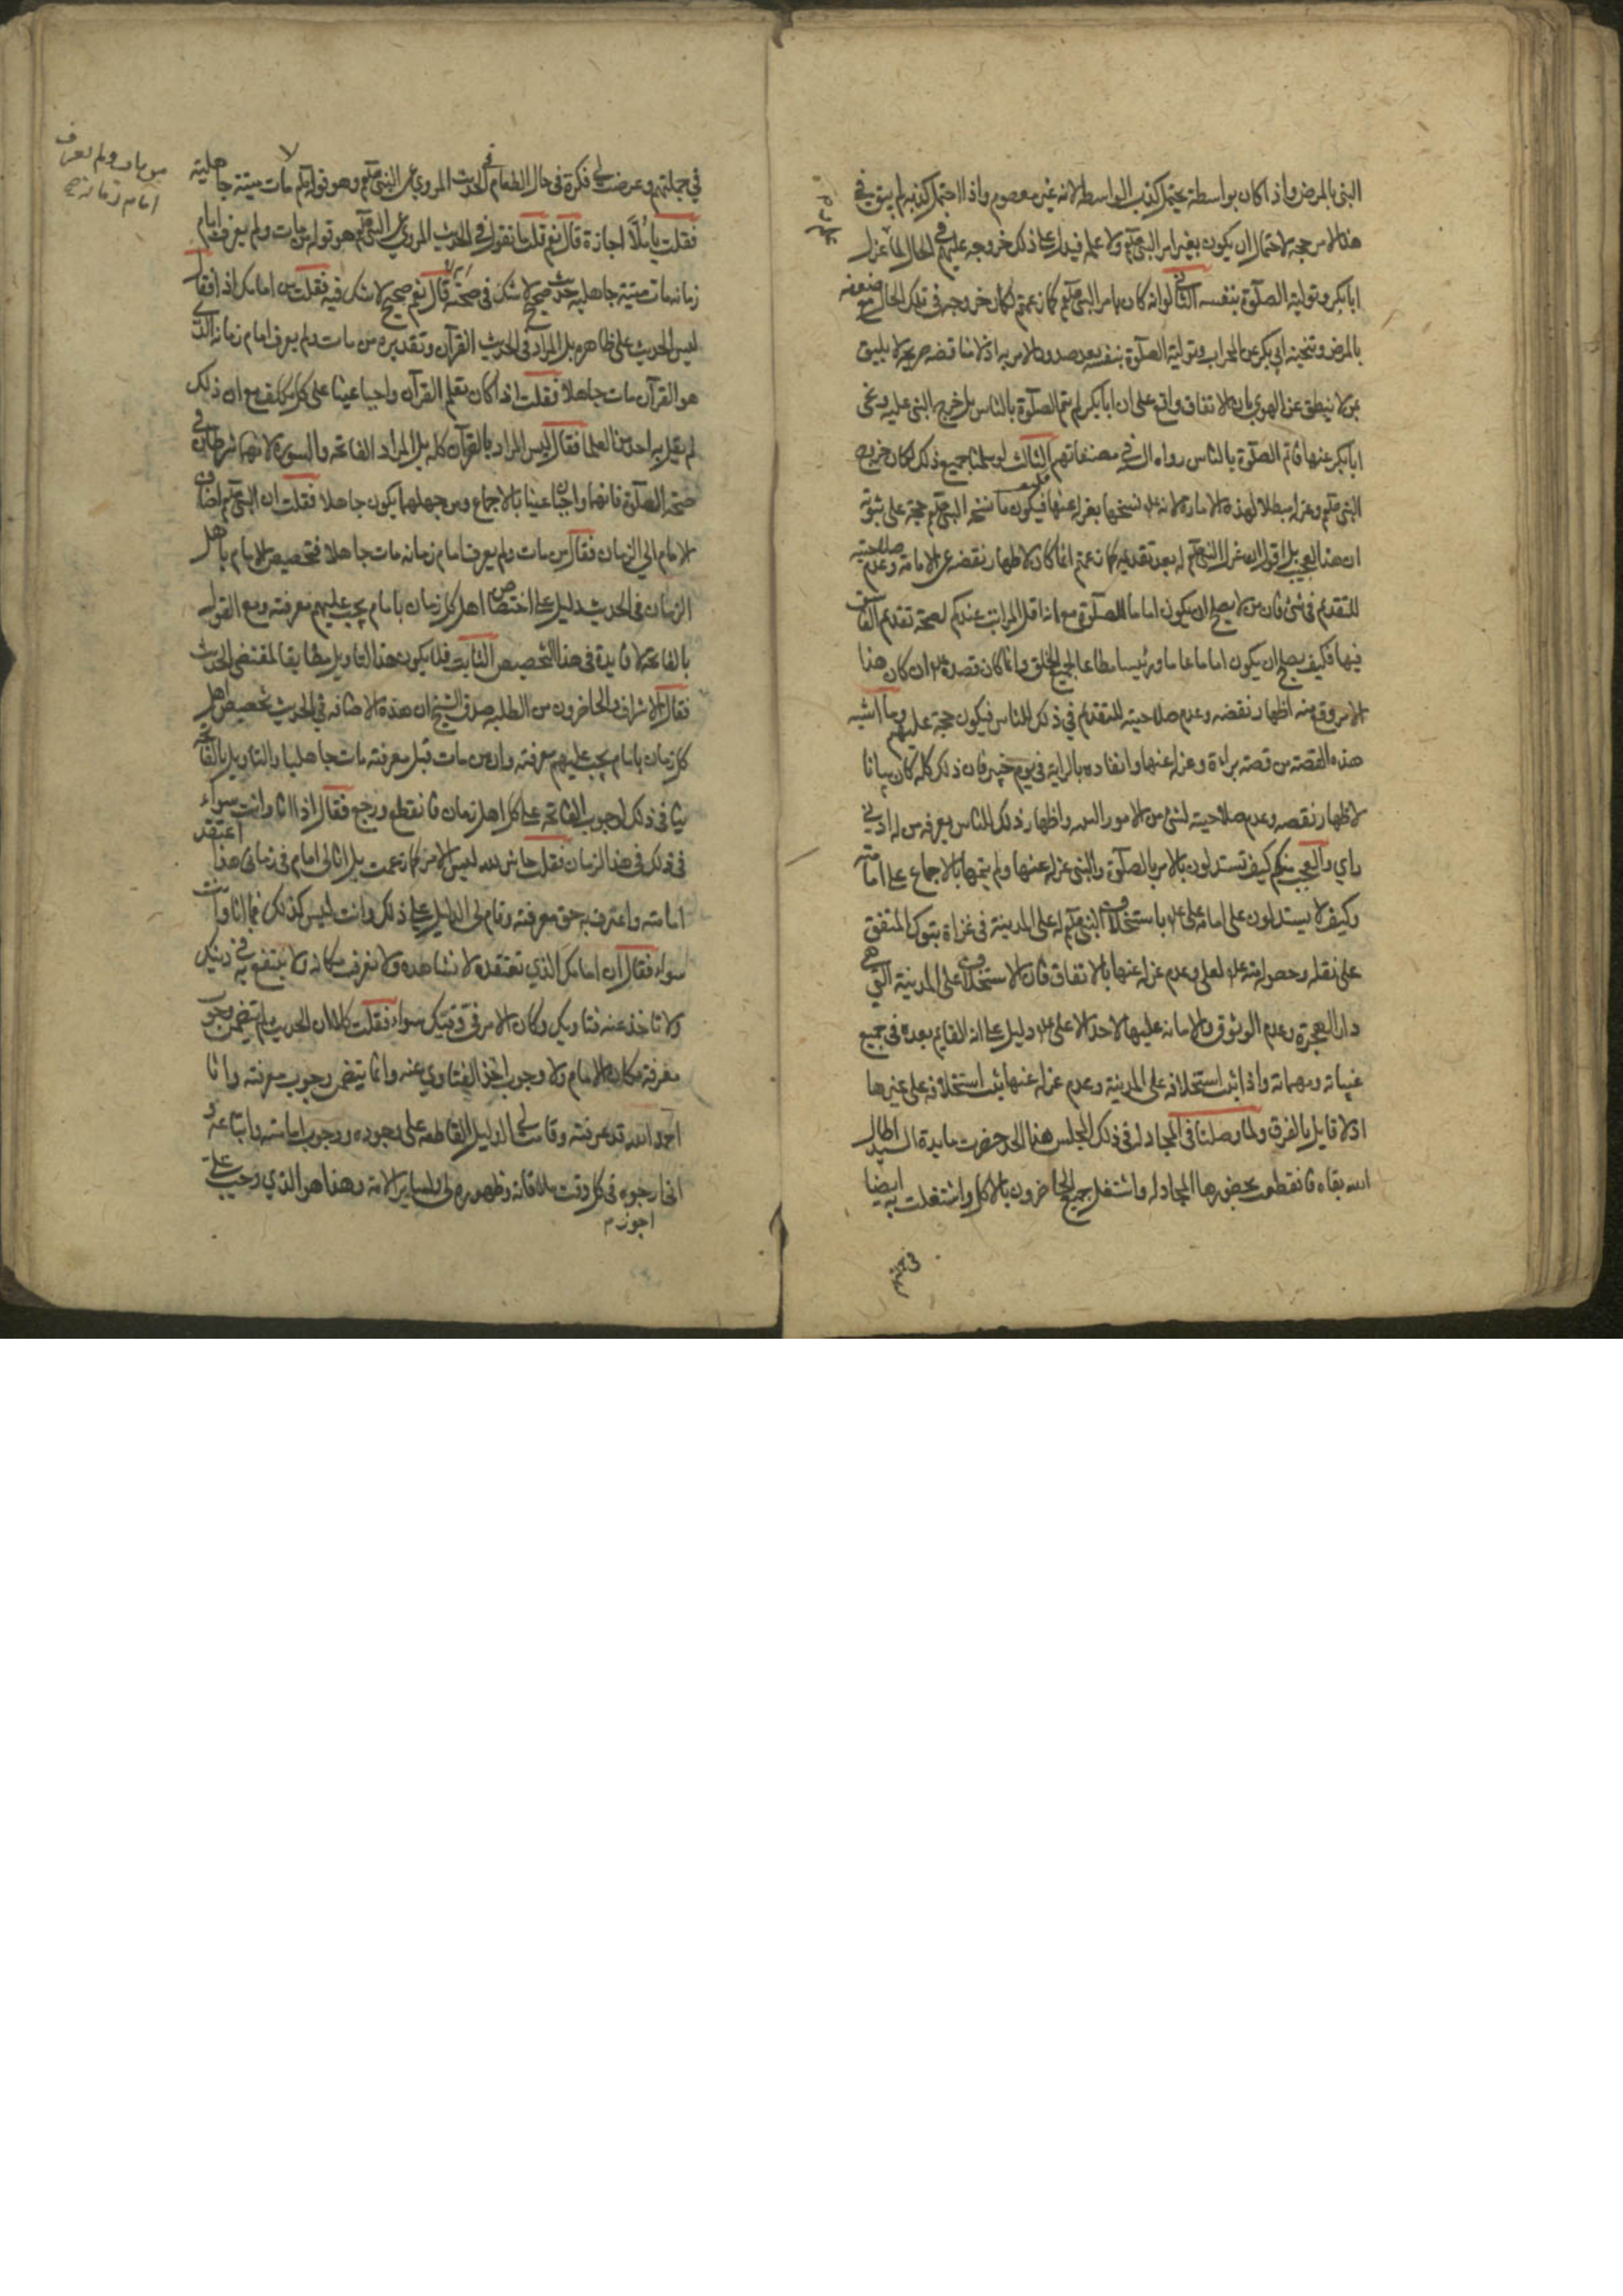 النبي بالمرض واذا كان بواسطة يحتمل كذب الواسطه لانه غير معصوم واذا احتمل كذبه لم يبق في
هذا الامر حجة لاحتمال ان يكون بغير امر النبي صلعم ولا علمه فيدل على ذلك خروجه عليهم في الحال لما عزل
ابا بكر وتولية الصلوة بنفسه الثاني لو انه كان بامر النبي صلعم كما زعمتم لكان خروجه في تلك الحال مع ضعفه
بالمرض وتنحيته ابي بكر عن المحراب وتولية الصلوة بنفسه بعد صدور الامر به اذ لا مناقضه صريحة لا يليق
بمن لا ينطق عن الهوى بان الاتفاق واقع على ان ابا بكر لم يتم الصلوة بالناس بل خرج النبي عليه ونحى
ابا بكر عنها فاتم الصلوة بالناس رواه في مصنفاتهم الثالث لو سلمنا جميع ذلك لكان خروج
النبي صلعم وعزله مبطلا لهذه الامارة لانه نسخها بعزله عنها فيكون ما نسخه النبي صلعم حجة على ثبوته
ان هذا لعجب بل اقول ان عزل النبي صلعم له بعد تقديمه كما زعمتم انما كان لاظهار نقضه عن الامامة وعدم صلاحيته
للتقديم في شئ فان من لا يصلح ان يكون اماما للصلوة مع انه اقل المراتب عندكم لصحة تقديم الفاسق
فيها فكيف يصلح ان يكون اماما عاما ورئيسا مطاعا لجميع الخلق وانما كان قصده ان كان هذا
الامر وقع منه اظهار نقضه وعدم صلاحيته للتقديم في ذلك للناس فيكون حجة عليهم وما اشبه
هذه القصة من قصة براءة وعزله عنها وانفاده بالراية في يوم خيبر فان ذلك كله كان بيانا
لاظهار نقصه وعدم صلاحيته لشئ من الامور واظهار ذلك للناس يعرفه من له ادنى
راي والعجب منكم كيف تستدلون بالامر بالصلوة والنبي عزله عنها ولم يتمها بالاجماع على امامته
وكيف لا يستدلون على امامة علي باستخلاف النبي صلعم له على المدينة في غزاة تبوك المتفق
على نقله وحصوله منه لعلي وعدم عزله عنها بالاتفاق فان الاستخلاف على المدينة التي هي
دار الهجرة وعدم الوثوق والامانة عليها لاحد الا علي دليل على انه القايم بعده في جميع
غيباته ومهماته واذا ثبت استخلافه على المدينة وعدم عزله عنها ثبت استخلافه على غيرها
اذ لا قايل بالفرق ولما وصلنا في المجادله في ذلك المجلس هذا الحد حضرت مايدة السيد اطال
الله بقاه فانقطعت بحضورها المجادله واشتغل جميع الحاضرون بالاكل واشتغلت به ايضا
في جملتهم وعرضت لي فكرة في حال الطعام في الحديث المروي عن النبي صلعم وهو قوله صلعم مات ميتة جاهلية
من مات ولم يعرف
امام زمانه صح
فقلت يا ملا اجازة قال نعم قلت ما تقول في الحديث المروي عن النبي صلعم هو قوله من مات ولم يعرف امام
زمانه مات ميتة جاهلية حديث صحيح لا شك في صحته قال نعم صحيح لا شك فيه فقلت من امامك اذا فقال
ليس الحديث على ظاهره بل المراد في الحديث القرآن وتقديره من مات ولم يعرف امام زمانه الذي
هو القرآن مات جاهلا فقلت اذا كان تعلم القرآن واجبا عينا على كل مكلف مع ان ذلك
لم يقل به احد من العلما فقال ليس المراد بالقرآن كله بل المراد الفاتحه والسورة لانهما شرطان في
صحة الصلوة فانهما واجبان عينا بالاجماع ومن جهلهما يكون جاهلا فقلت ان النبي صلعم اضاف
الامام الى الزمان فقال من مات ولم يعرف امام زمانه مات جاهلا فتخصيص الامام باهل
الزمان في الحديث دليل على اختصاص اهل كل زمان بامام يجب عليهم معرفته ومع القول
بالفاتحة لا فايدة في هذا التخصيص الثابت فلا يكون هذا التاويل مطابقا لمقتضى الحديث
فقال الاشراف والحاضرون من الطلبه صدق الشيخ ان هذه الاضافه في الحديث تخصيص اهل
كل زمان بامام يجب عليهم معرفته وان من مات قبل معرفته مات جاهليا والتاويل بالفاتحة
ينافي ذلك لوجوب الفاتحه على كل اهل زمان فانقطع ورجع فقال اذا انا وانت سواء
في ذلك في هذا الزمان فقلت حاش لله ليس الامر كما زعمت بل انا لي امام في زماني هذا اعتقد
امامته واعترف به حق معرفته وقام لي الدليل على ذلك وانت ليس كذلك فما انا وانت
سواء فقال ان امامك الذي تعتقده لا تشاهده ولا تعرف مكانه ولا ينتفع به في دينك
ولا تاخذ عنه فتاويك وكان الامر في وفيك سواء فقلت كلا ان الحديث لم يتضمن وجوب
معرفة مكان الامام ولا وجوب اخذ الفتاوي عنه وانما يتضمن وجوب معرفته وانا
احمد الله قد عرفته وقامت لي الدليل القاطعه على وجوده ووجوب امامته واتباعه و
اني ارجوه في كل وقت ملاقاته وظهوره لي ولساير الامة وهذا هو الذي وجب علي